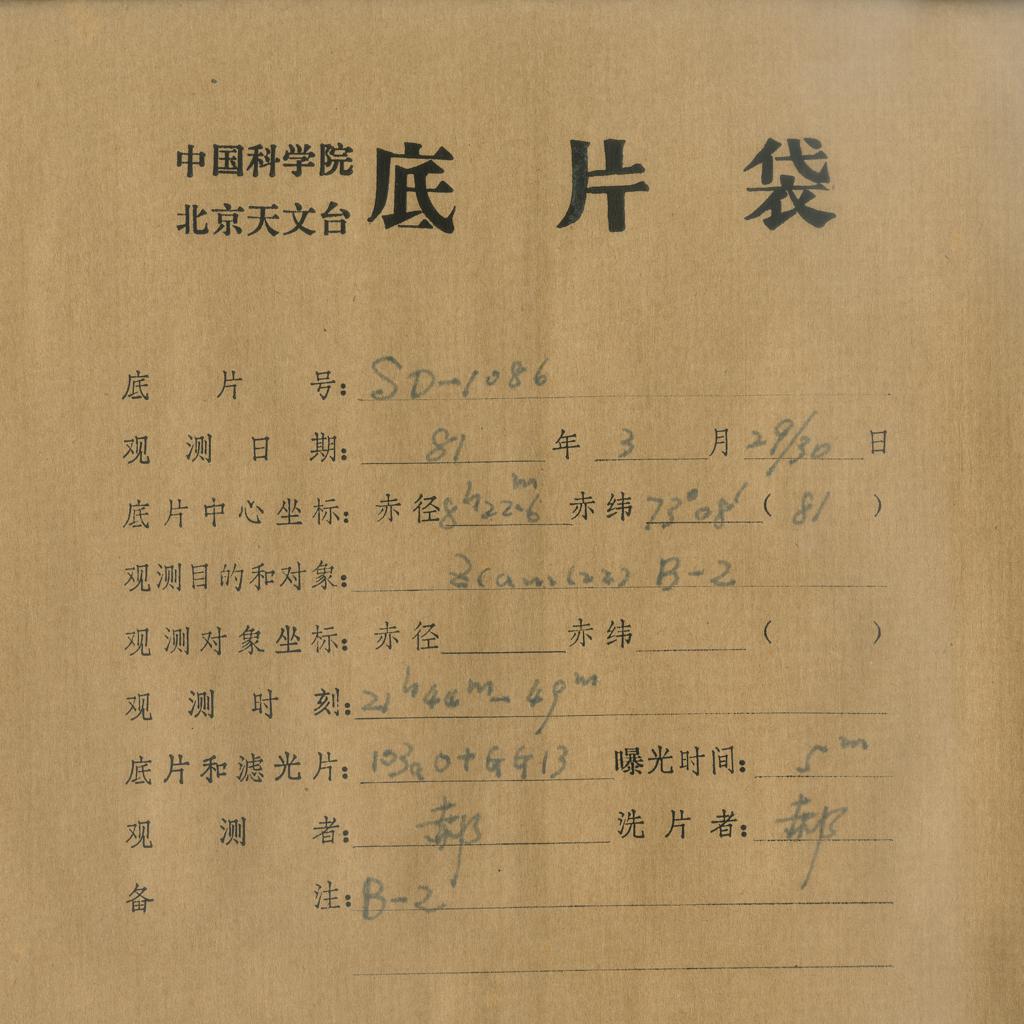 中国科学院
北京天文台
底片袋
底片号：SD-1086
观测日期：81年3月29/30日
底片中心坐标：赤径8ʰ22ᵐ.6赤纬73°08′（81）
观测目的和对象：Z Cam(22) B-2
观测对象坐标：赤径 赤纬（ ）
观测时刻：21ʰ44ᵐ-49ᵐ
底片和滤光片：103aO+GG13 曝光时间：5ᵐ
观测者：郝 洗片者：郝
备注：B-2